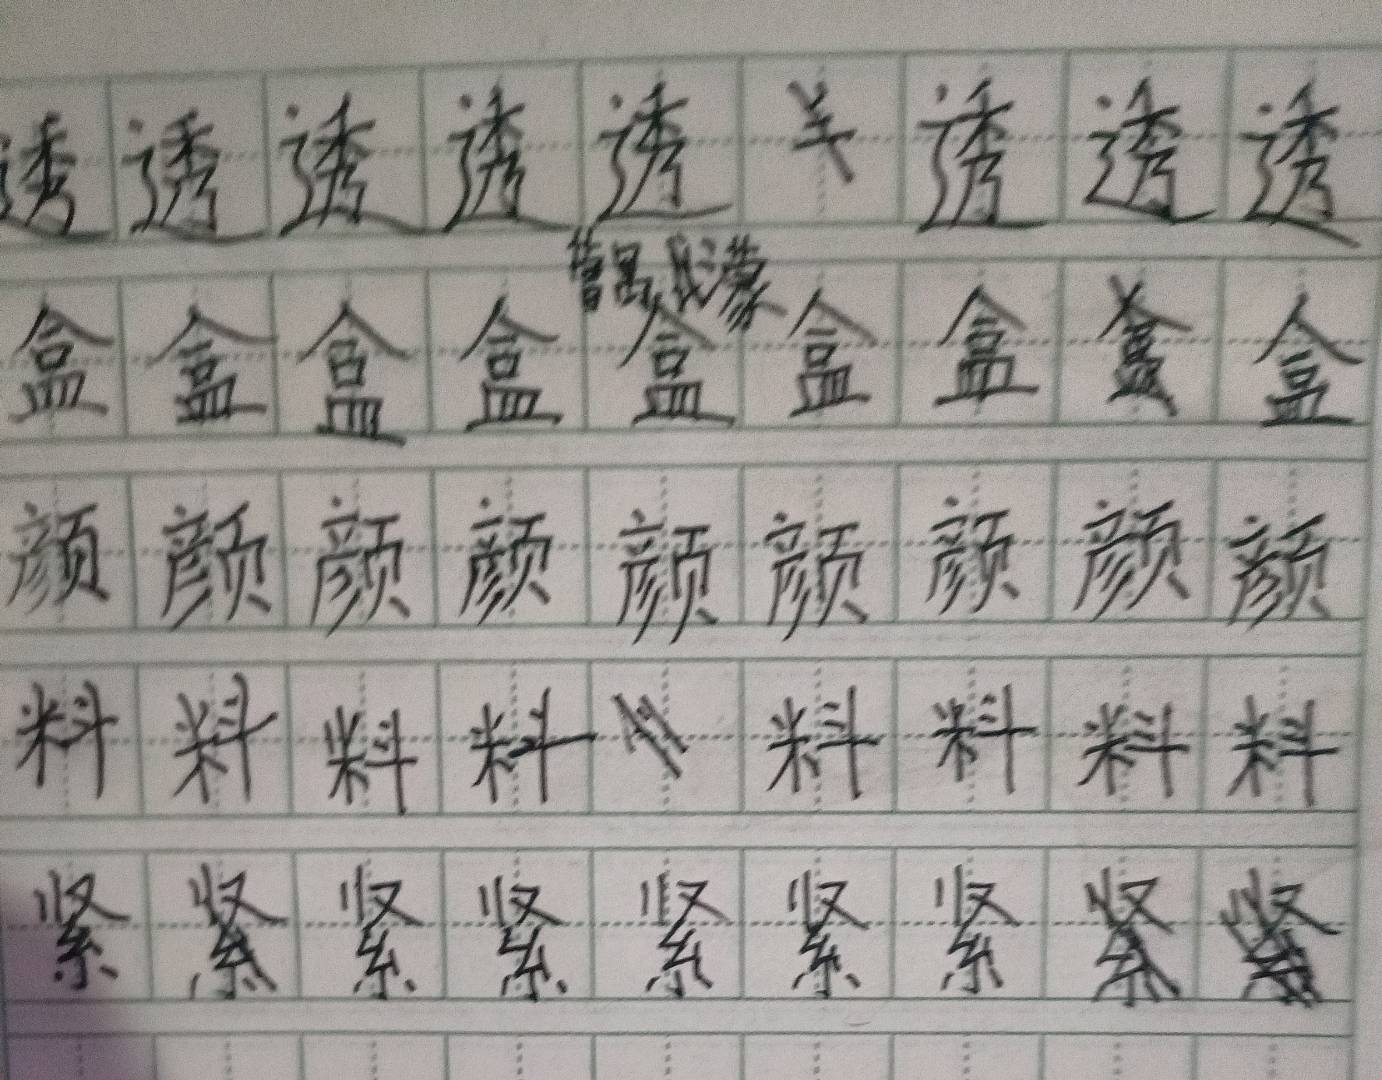 透透透透透透透透
盒盒盒盒盒盒盒盒
颜颜颜颜颜颜颜颜颜
料料料料料料料料
紧紧紧紧紧紧紧紧